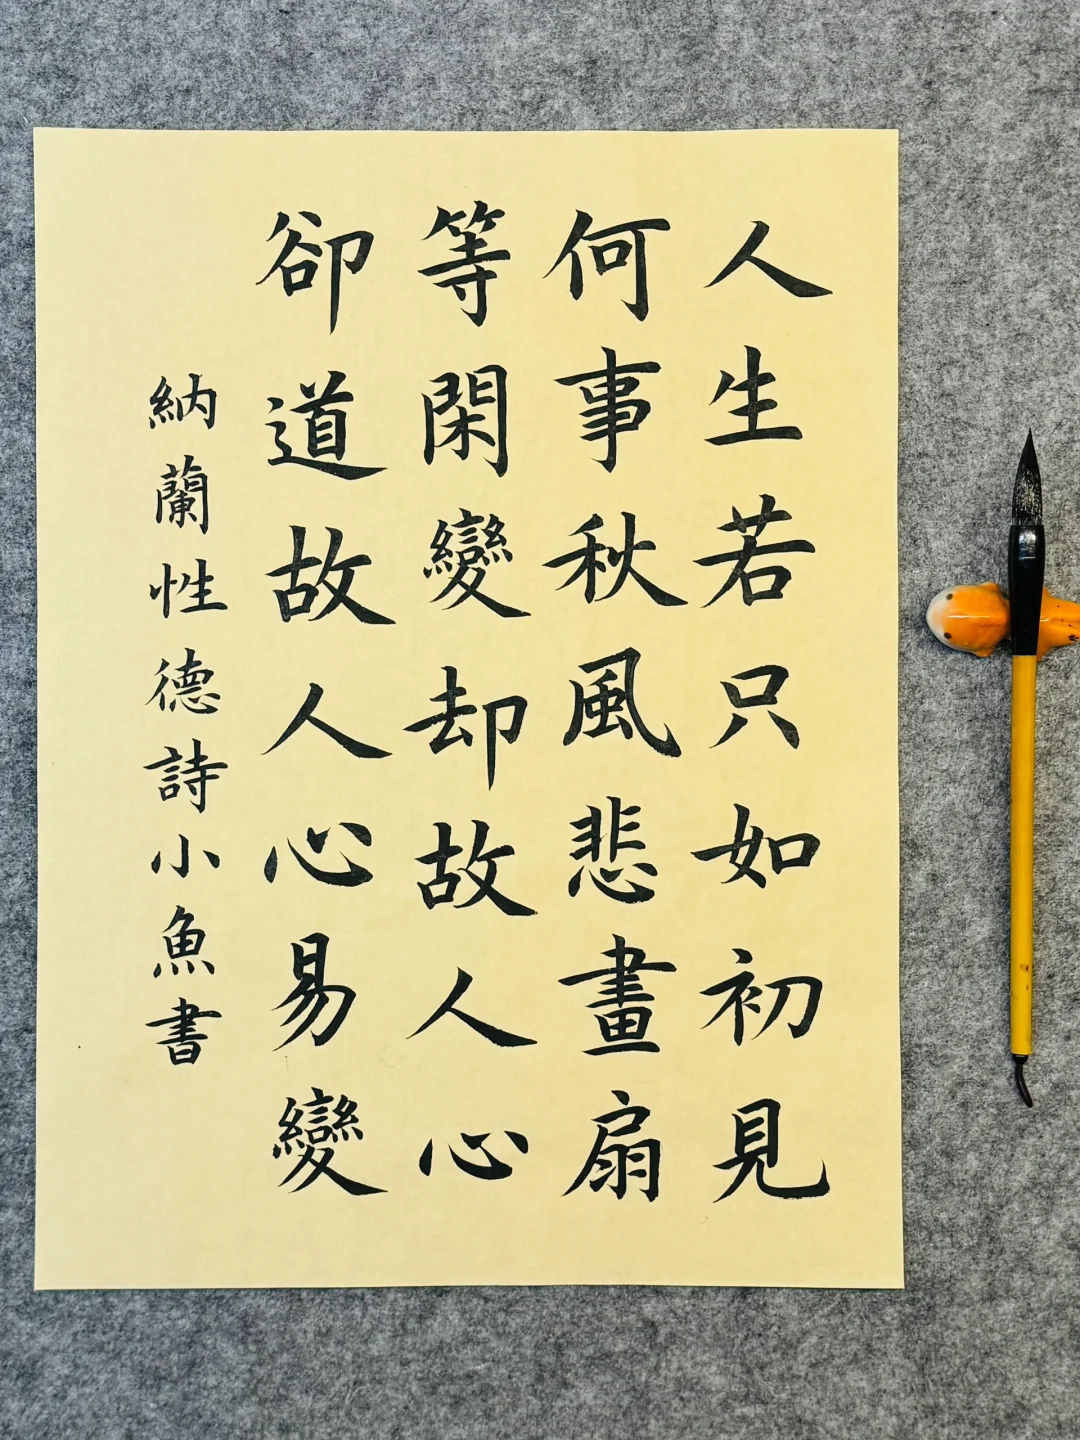 人生若只如初見
何事秋風悲畫扇
等閑變却故人心
卻道故人心易變
納蘭性德詩小魚書